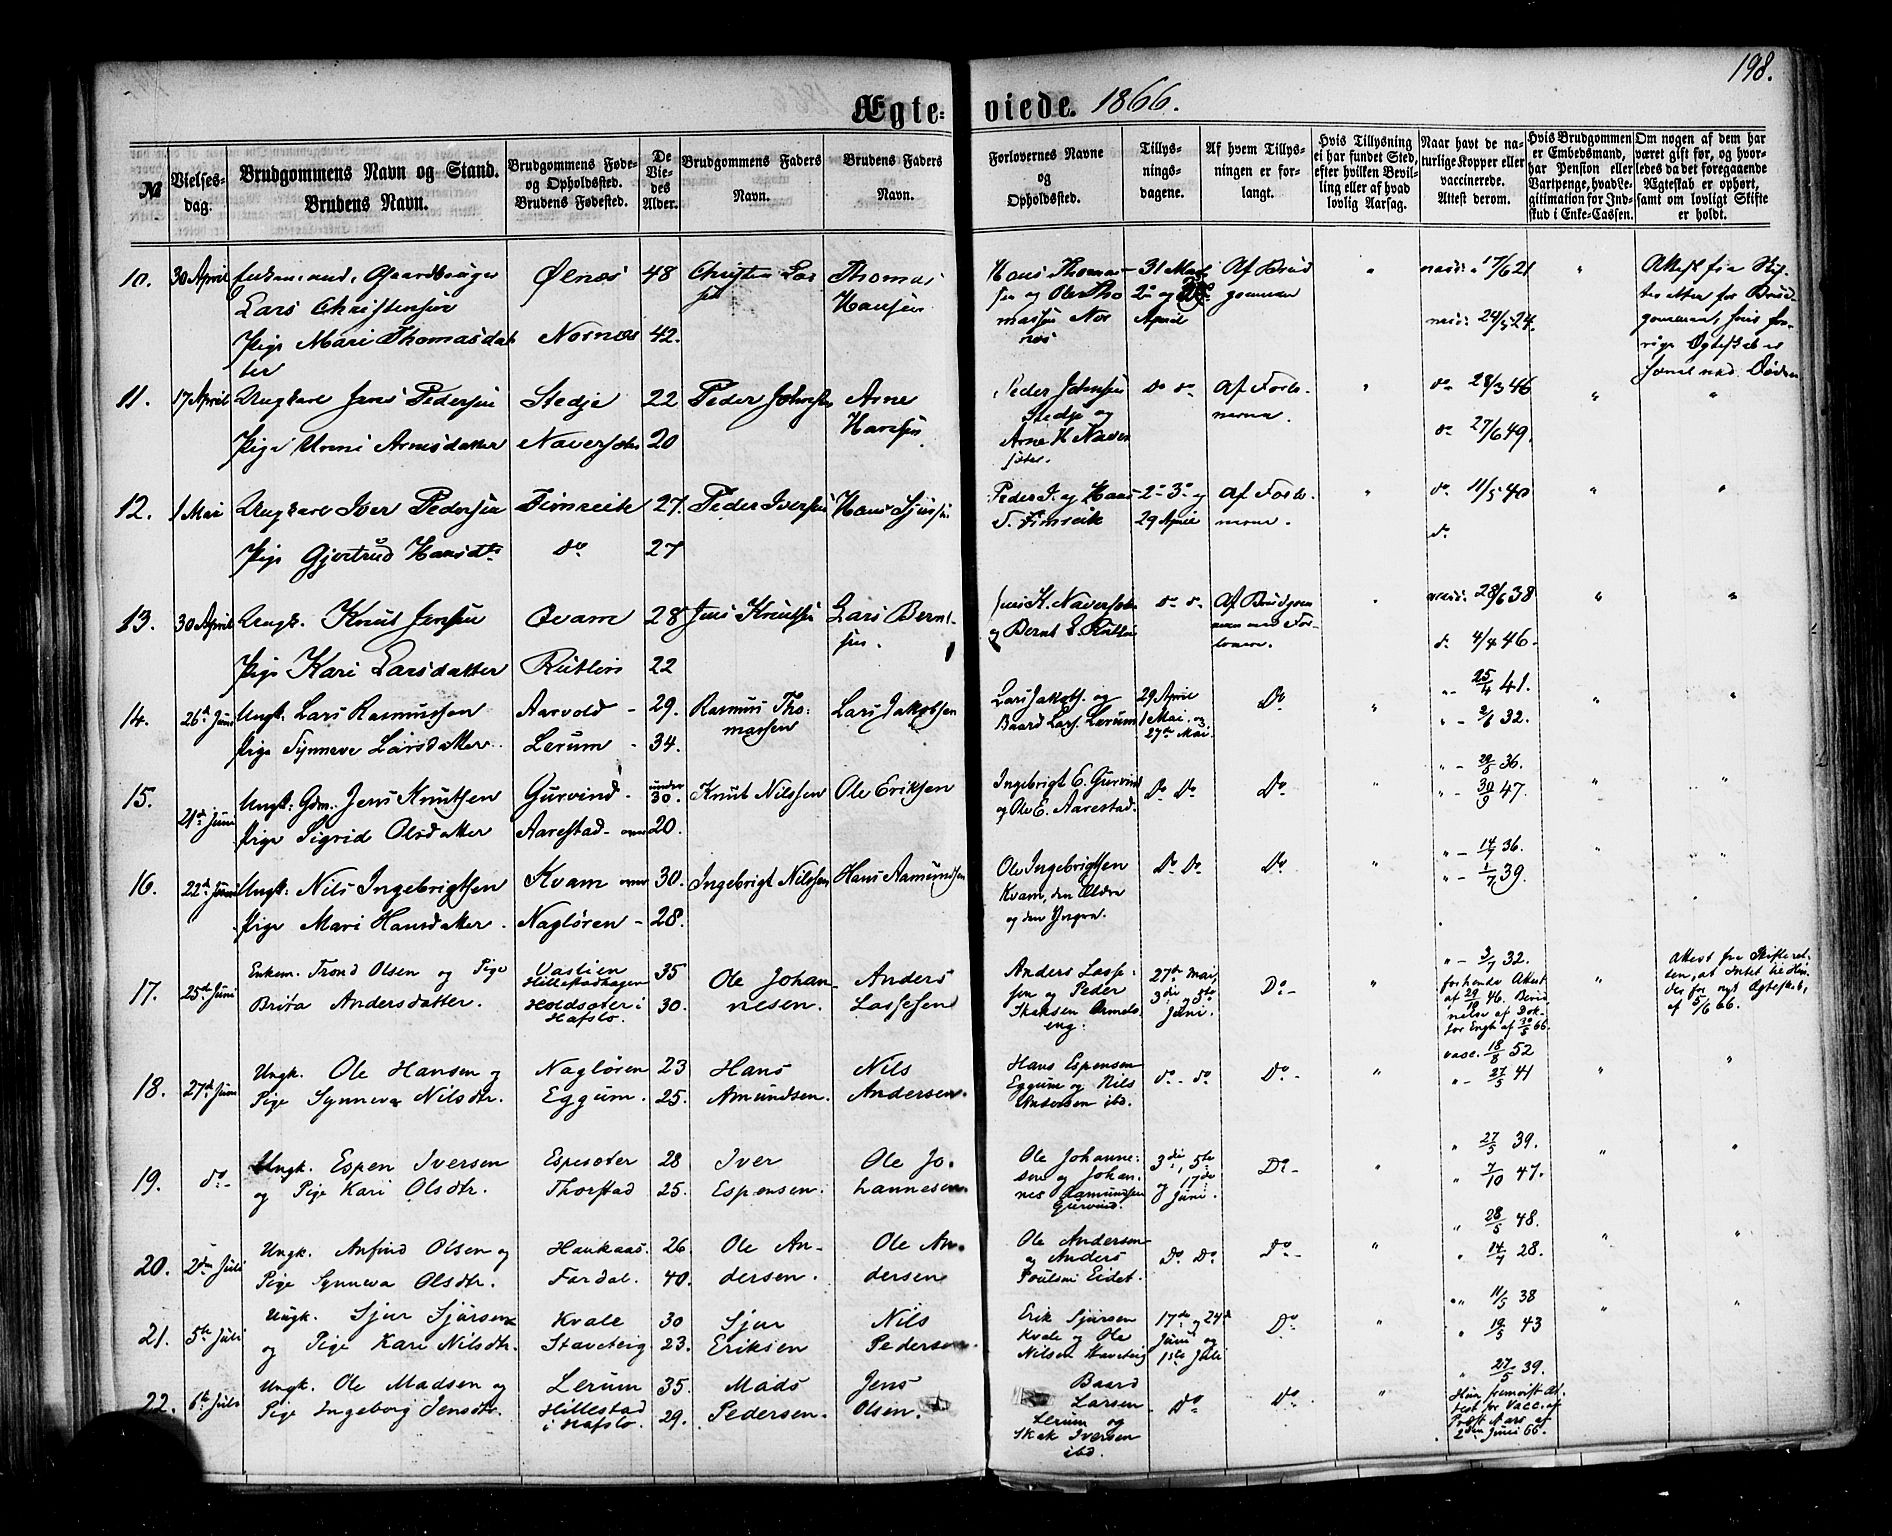 198.
Ægteviede. 1866.
№
Vielsesdag.
Brudgommens Navn og Stand.
Brudens Navn.
Brudgommens Føde-
og Opholdssted.
Brudens Fødested.
De
Vie-
des
Alder.
Brudgommens Faders
Navn.
Brudens Faders
Navn.
Forlovernes Navne
og
Opholdssted.
Tillys-
nings-
dagene.
Af hvem Tillys-
ningen er for-
langt.
Hvis Tillysning
ei har fundet Sted,
efter hvilken Bevil-
ling eller af hvad
lovlig Aarsag.
Naar havt de na-
turlige Kopper eller
vaccinerede.
Attest derom.
Hvis Brudgommen
er Embedsmand,
har Pension eller
Vartpenge, hvad Le-
gitimation for Ind-
skud i Enke-Cassen.
Om nogen af dem har
været gift før, og hvor-
ledes da det foregaaende
Ægteskab er ophørt,
samt om lovligt Skifte
er holdt.
10. 30 April Gaardbruger Ølnæs 48 Christen Lar Thomas Hans Thomas- 31 Mai Af Brud " 17/6 21 " Attest fra Skif-
Lars Christensen sen Hansen sen og Ole Tho 2 og gommen
Pige Mari Thomasdat Nornæs 42. massen Nor April 24/5 24.
ter næs
11. 17 April Ungkarl Jens Pedersen Stedje 22 Peder Johnsen Arne Peder Johnsen do do Af Forlo- " do 28/3 46 " "
Hansen Stedje og verne
Pige Unni Arnesdatter Navarsæter 20 Arne H Navar do 27/6 49.
sæter.
12. 1 Mai Ungkarl Iver Pedersen Fimreite 27. Peder Iversen Hans Sjursen Peder I. og Hans 2 3 og Af Forlo- " do 11/5 40 " "
S. Fimreite 29 April verne.
Pige Gjertrud Hansdtr do 27 do
13. 30 April Ungk. Knut Jensen Qvam 28 Jens Knutsen Lars Bernt- Jens K. Navarsæter do do Af Brudgom 28/6 38 " "
sen. og Bernt L. Rutlin
Pige Kari Larsdatter Rutlin 22 do 4/4 46.
14. 26de Juni Ungk. Lars Rasmussen Aarvold - 29. Rasmus Tho- Lars Jakobsen Lars Jakobs. og 29 April Do " " - 25/4 41. " "
massen Baard Lars. Lerum 1 Mai, og " - 2/6 32.
Pige Synneve Larsdatter. Lerum - 34. 27de Mai.
15. 21de Juni Ungk: Gdm. Jens Knutsen Gurvind - under 30. Knut Nilssen Ole Eriksen Ingebrigt E. Gurvind Do Do Do " " - 29/8 36. " "
Pige Sigrid Olsdatter Aarestad - over 20. og Ole E. Aarestad. " - 30/9 47.
16. 22de Juni Ungk: Nils Ingebrigtsen Kvam over 30. Ingebrigt Nilssen Hans Aamundsen Ole Ingebrigtsen Do Do Do " " - 14/7 36. " "
Kvam, den Ældre " - 1/7 39.
Pige Mari Hansdatter. Nagløren - 28. og den Yngre.
17. 25de Juni Enkem. Trond Olsen og Pige Vastien 35 Ole Johan Anders Anders Lasse- 27de Mai, Do - " " - 3/7 32. " Attest fra Skifteret-
Hillestadhagen sen og Peder 3die og 5te forhende Attest ten, at Intet er til Hin-
Brita Andersdatter. Holdsæter i 30. nesen. Lassesen Skaksen Ormels Juni. af 29/10 46. der for nyt Ægteskab,
Hafslo eng. af 5/6 66.
tor Engh af 30/5 66.
18. 27de Juni Ungk. Ole Hansen og Nagløren 23 Hans Nils Hans Espensen do - do Do - " vacc. 18/8 52 " "
Pige Synneva Nilsdtr. Eggum. 25. Amundsen. Andersen. Eggum og Nils " - 27/5 41
Andersen ibd.
19. do - Ungk. Espen Iversen Espesæter 28 Iver Ole Jo- Ole Johanne- 3die, 5te Do - " " 27/5 39. " "
og Pige Kari Olsdtr. Thorstad 25. Espensen. hannesen. sen og Johan- og 17de " 7/10 47.
nes Aamundsen Juni.
Gurvind.
20. 2den Juli Ungk. Anfind Olsen og Haukaas. 26. Ole An- Ole An- Ole Andersen Do Do Do - " " 28/5 48. " "
og Anders
Pige Synneva Olsdtr. Fardal. 40. dersen. dersen Poulsen Eidet. " 14/7 28.
21. 5te Juli Ungk. Sjur Sjursen Kvale 30 Sjur Nils Erik Sjursen 17de og 24de Do - " " 11/5 38 " "
Kvale og Ole Juni og
og Pige Kari Nilsdtr. Staveteig 23. Eriksen Pedersen Nilsen Staveteig 1ste Juli " 19/5 43
22. 6te Juli Ungk. Ole Madsen og Lerum 35. Mads Jens Baard Do Do " " 27/5 39.
Pige Ingeborg Jensdtr. Hillestad 29. Pedersen. Olsen. Larsen Har fremvist At-
i Hafslo Lerum og test for Vacc. af
Skak Iversen Provst Aars af
ibd. 2den Juni 66.